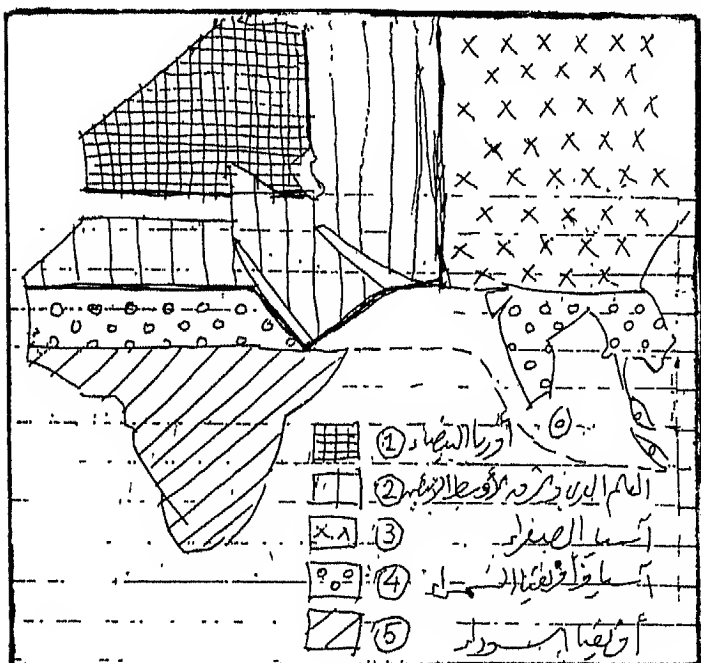 ① أوربا البيضاء
② العالم الأوسط
③ آسيا الصفراء
④ آسيا وأفريقيا السمراء
⑤ أفريقيا السوداء